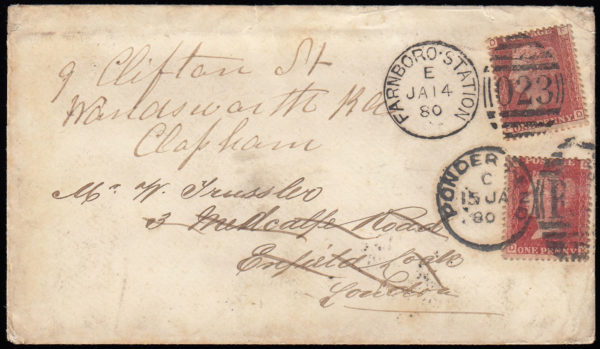 9 Clifton St
Wandsworth Rd
Clapham
Mr. W. Trussler
3 Medcalfe Road
Enfield Lock
London
FARNBORO·STATION
E
JA 14
80
023
ONE PENNY
PONDER
C
15 JA
80
ONE PENNY